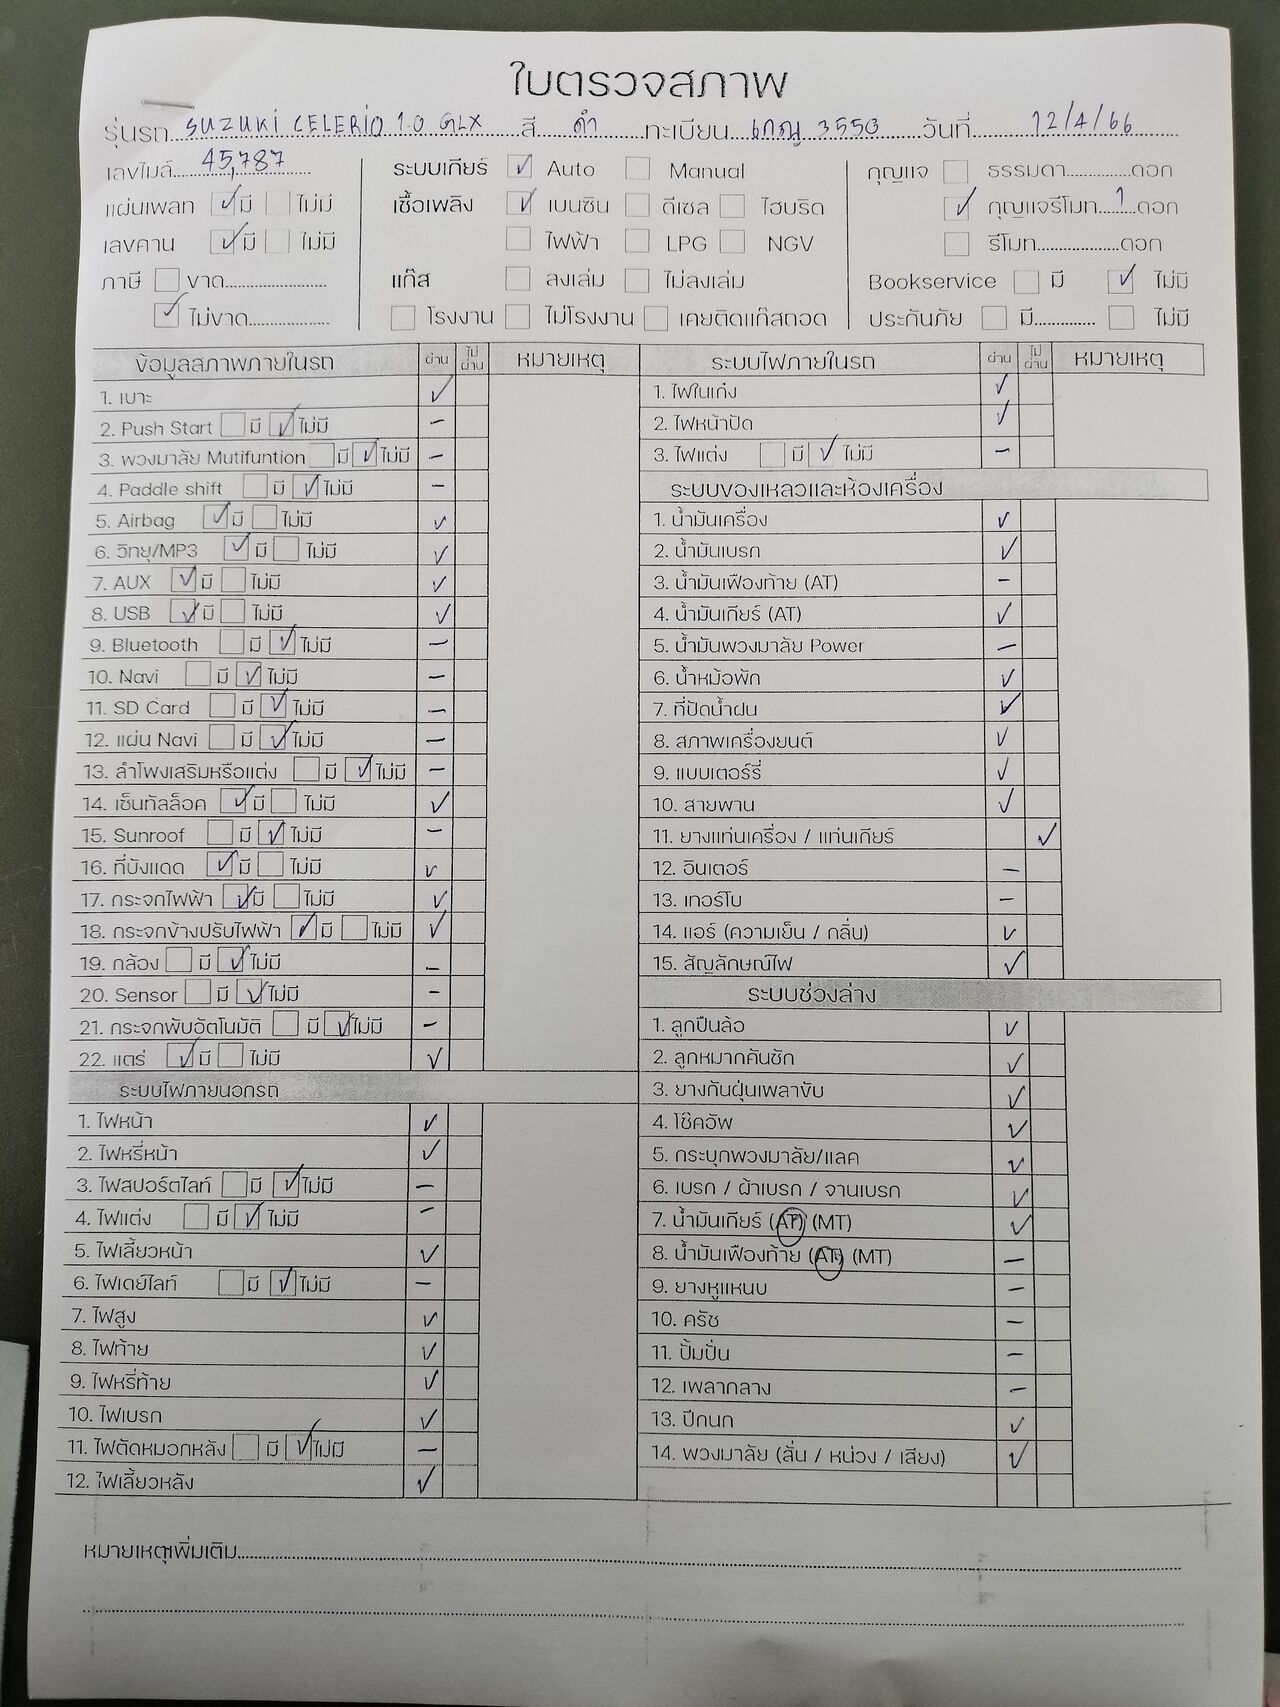 ใบตรวจสภาพ
รุ่นรถ SUZUKI CELERIO 1.0 GLX สี ดำ ทะเบียน 3550 วันที่ 12/4/66
เลขไมล์ 45,787
แผ่นเพลท ✓ มี ไม่มี
เลขคาน ✓ มี ไม่มี
ภาษี ขาด
✓ ไม่ขาด
ระบบเกียร์ ✓ Auto Manual
เชื้อเพลิง ✓ เบนซิน ดีเซล ไฮบริด
ไฟฟ้า LPG NGV
แก๊ส ลงเล่ม ไม่ลงเล่ม
โรงงาน ไม่โรงงาน เคยติดแก๊สถอด
กุญแจ ธรรมดา ดอก
✓ กุญแจรีโมท 1 ดอก
รีโมท ดอก
Bookservice มี ✓ ไม่มี
ประกันภัย มี ไม่มี
ข้อมูลสภาพภายในรถ ผ่าน ไม่ผ่าน หมายเหตุ
1. เบาะ ✓
2. Push Start มี ✓ ไม่มี –
3. พวงมาลัย Mutifuntion มี ✓ ไม่มี –
4. Paddle shift มี ✓ ไม่มี –
5. Airbag ✓ มี ไม่มี ✓
6. วิทยุ/MP3 ✓ มี ไม่มี ✓
7. AUX ✓ มี ไม่มี ✓
8. USB ✓ มี ไม่มี ✓
9. Bluetooth มี ✓ ไม่มี –
10. Navi มี ✓ ไม่มี –
11. SD Card มี ✓ ไม่มี –
12. แผ่น Navi มี ✓ ไม่มี –
13. ลำโพงเสริมหรือแต่ง มี ✓ ไม่มี –
14. เซ็นทัลล็อค ✓ มี ไม่มี ✓
15. Sunroof มี ✓ ไม่มี –
16. ที่บังแดด ✓ มี ไม่มี ✓
17. กระจกไฟฟ้า ✓ มี ไม่มี ✓
18. กระจกข้างปรับไฟฟ้า ✓ มี ไม่มี ✓
19. กล้อง มี ✓ ไม่มี –
20. Sensor มี ✓ ไม่มี –
21. กระจกพับอัตโนมัติ มี ✓ ไม่มี –
22. แตร่ ✓ มี ไม่มี ✓
ระบบไฟภายนอกรถ
1. ไฟหน้า ✓
2. ไฟหรี่หน้า ✓
3. ไฟสปอร์ตไลท์ มี ✓ ไม่มี –
4. ไฟแต่ง มี ✓ ไม่มี –
5. ไฟเลี้ยวหน้า ✓
6. ไฟเดย์ไลท์ มี ✓ ไม่มี –
7. ไฟสูง ✓
8. ไฟท้าย ✓
9. ไฟหรี่ท้าย ✓
10. ไฟเบรก ✓
11. ไฟตัดหมอกหลัง มี ✓ ไม่มี –
12. ไฟเลี้ยวหลัง ✓
ระบบไฟภายในรถ ผ่าน ไม่ผ่าน หมายเหตุ
1. ไฟในเก๋ง ✓
2. ไฟหน้าปัด ✓
3. ไฟแต่ง มี ✓ ไม่มี –
ระบบของเหลวและห้องเครื่อง
1. น้ำมันเครื่อง ✓
2. น้ำมันเบรก ✓
3. น้ำมันเฟืองท้าย (AT) –
4. น้ำมันเกียร์ (AT) ✓
5. น้ำมันพวงมาลัย Power –
6. น้ำหม้อพัก ✓
7. ที่ปัดน้ำฝน ✓
8. สภาพเครื่องยนต์ ✓
9. แบบเตอร์รี่ ✓
10. สายพาน ✓
11. ยางแท่นเครื่อง / แท่นเกียร์ ✓
12. อินเตอร์ –
13. เทอร์โบ –
14. แอร์ (ความเย็น / กลิ่น) ✓
15. สัญลักษณ์ไฟ ✓
ระบบช่วงล่าง
1. ลูกปืนล้อ ✓
2. ลูกหมากคันชัก ✓
3. ยางกันฝุ่นเพลาขับ ✓
4. โช๊คอัพ ✓
5. กระบุกพวงมาลัย/แลค ✓
6. เบรก / ผ้าเบรก / จานเบรก ✓
7. น้ำมันเกียร์ (AT) (MT) ✓
8. น้ำมันเฟืองท้าย (AT) (MT) –
9. ยางหูแหนบ –
10. ครัช –
11. ปั้มปั่น –
12. เพลากลาง –
13. ปีกนก ✓
14. พวงมาลัย (สั่น / หน่วง / เสียง) ✓
หมายเหตุเพิ่มเติม